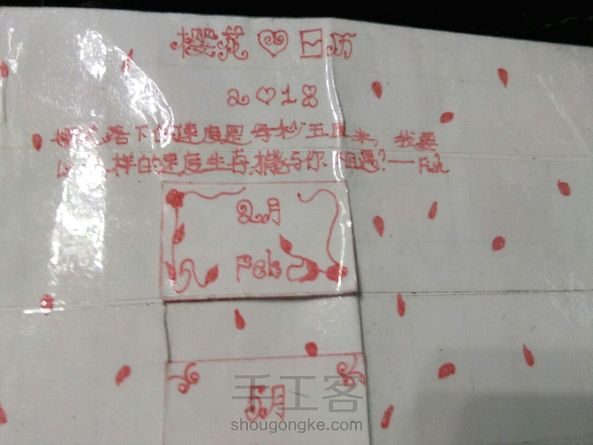 樱花♡日历
2♡18
樱花落下的速度是每秒五厘米,我要
以 样的速度生存,才能与你相遇?——Feb
2月
Feb
5月
手工客
shougongke.com